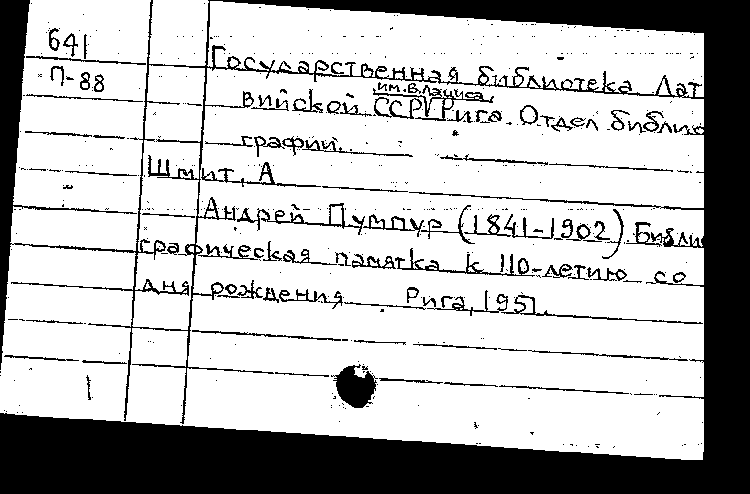 641
П-88
Государственная библиотека Лат
им. В. Лациса,
вийской ССР Рига. Отдел библио
графии.
Шмит, А
Андрей Пумпур (1841-1902) Библио
графическая памятка к 110-летию со
дня рождения. Рига, 1951.
1